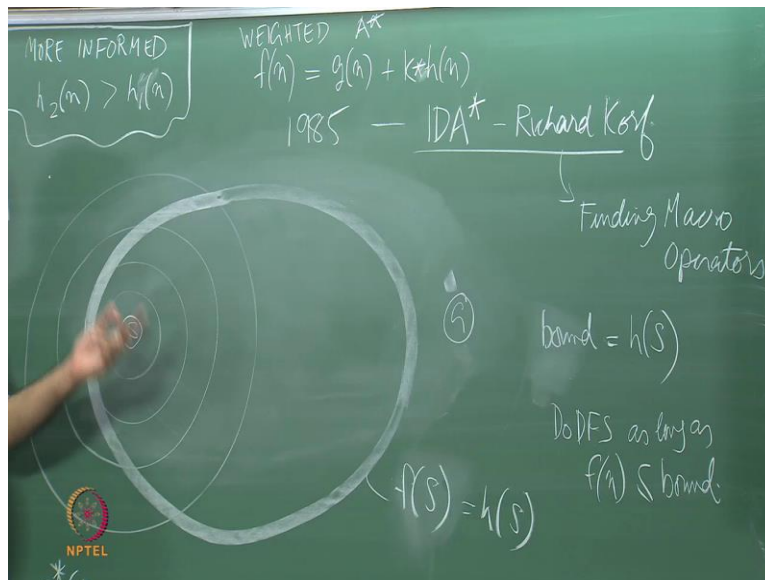 MORE INFORMED
h₂(n) > h₁(n)
WEIGHTED A*
f(n) = g(n) + k*h(n)
1985 — IDA* - Richard Korf.
Finding Macro
Operators
S
G
bound = h(S)
Do DFS as long as
f(n) ≤ bound.
f(S) = h(S)
NPTEL